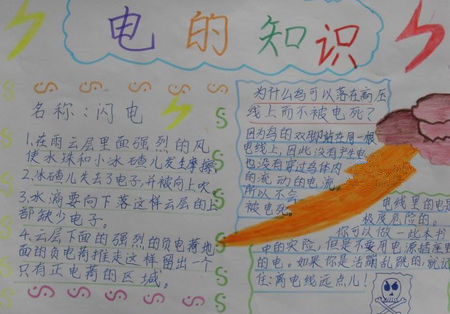 电的知识
名称:闪电
1.在雨云层里面强烈的风
使水珠和小冰碴儿发生摩擦
2.冰碴儿失去了电子,并被向上吹
3.水滴要向下落这样云层的上
都缺少电子。
4.云层下面的强烈的负电荷
面的负电荷推走这样留出一个
只有正电荷的区域。
为什么鸟可以落在高压
线上而不被电死?
因为鸟的双脚站在同一根
电线上,因此没有产生电
也没有穿过鸟体内
的流动的电流
所以不会
被电死。
电线里的电是
极度危险的。
你可以做一些书
中的实险,但是不要用电源插座
的电。如果你是活蹦乱跳的就记
住:离电线远点儿!